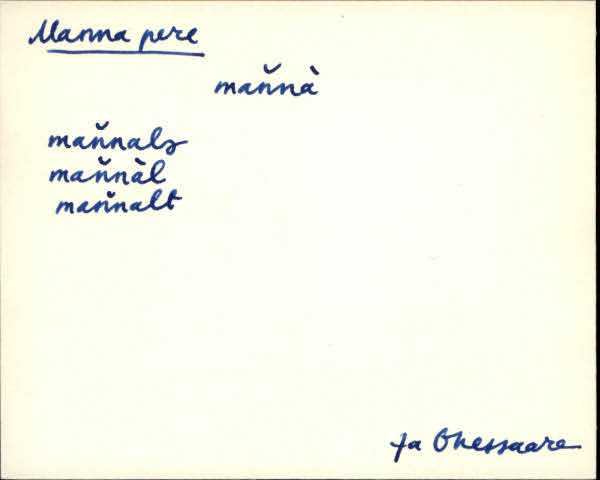 Manna pere
man̆nà
man̆nalꝫ
man̆nàl
man̆nalt
Ohessaare